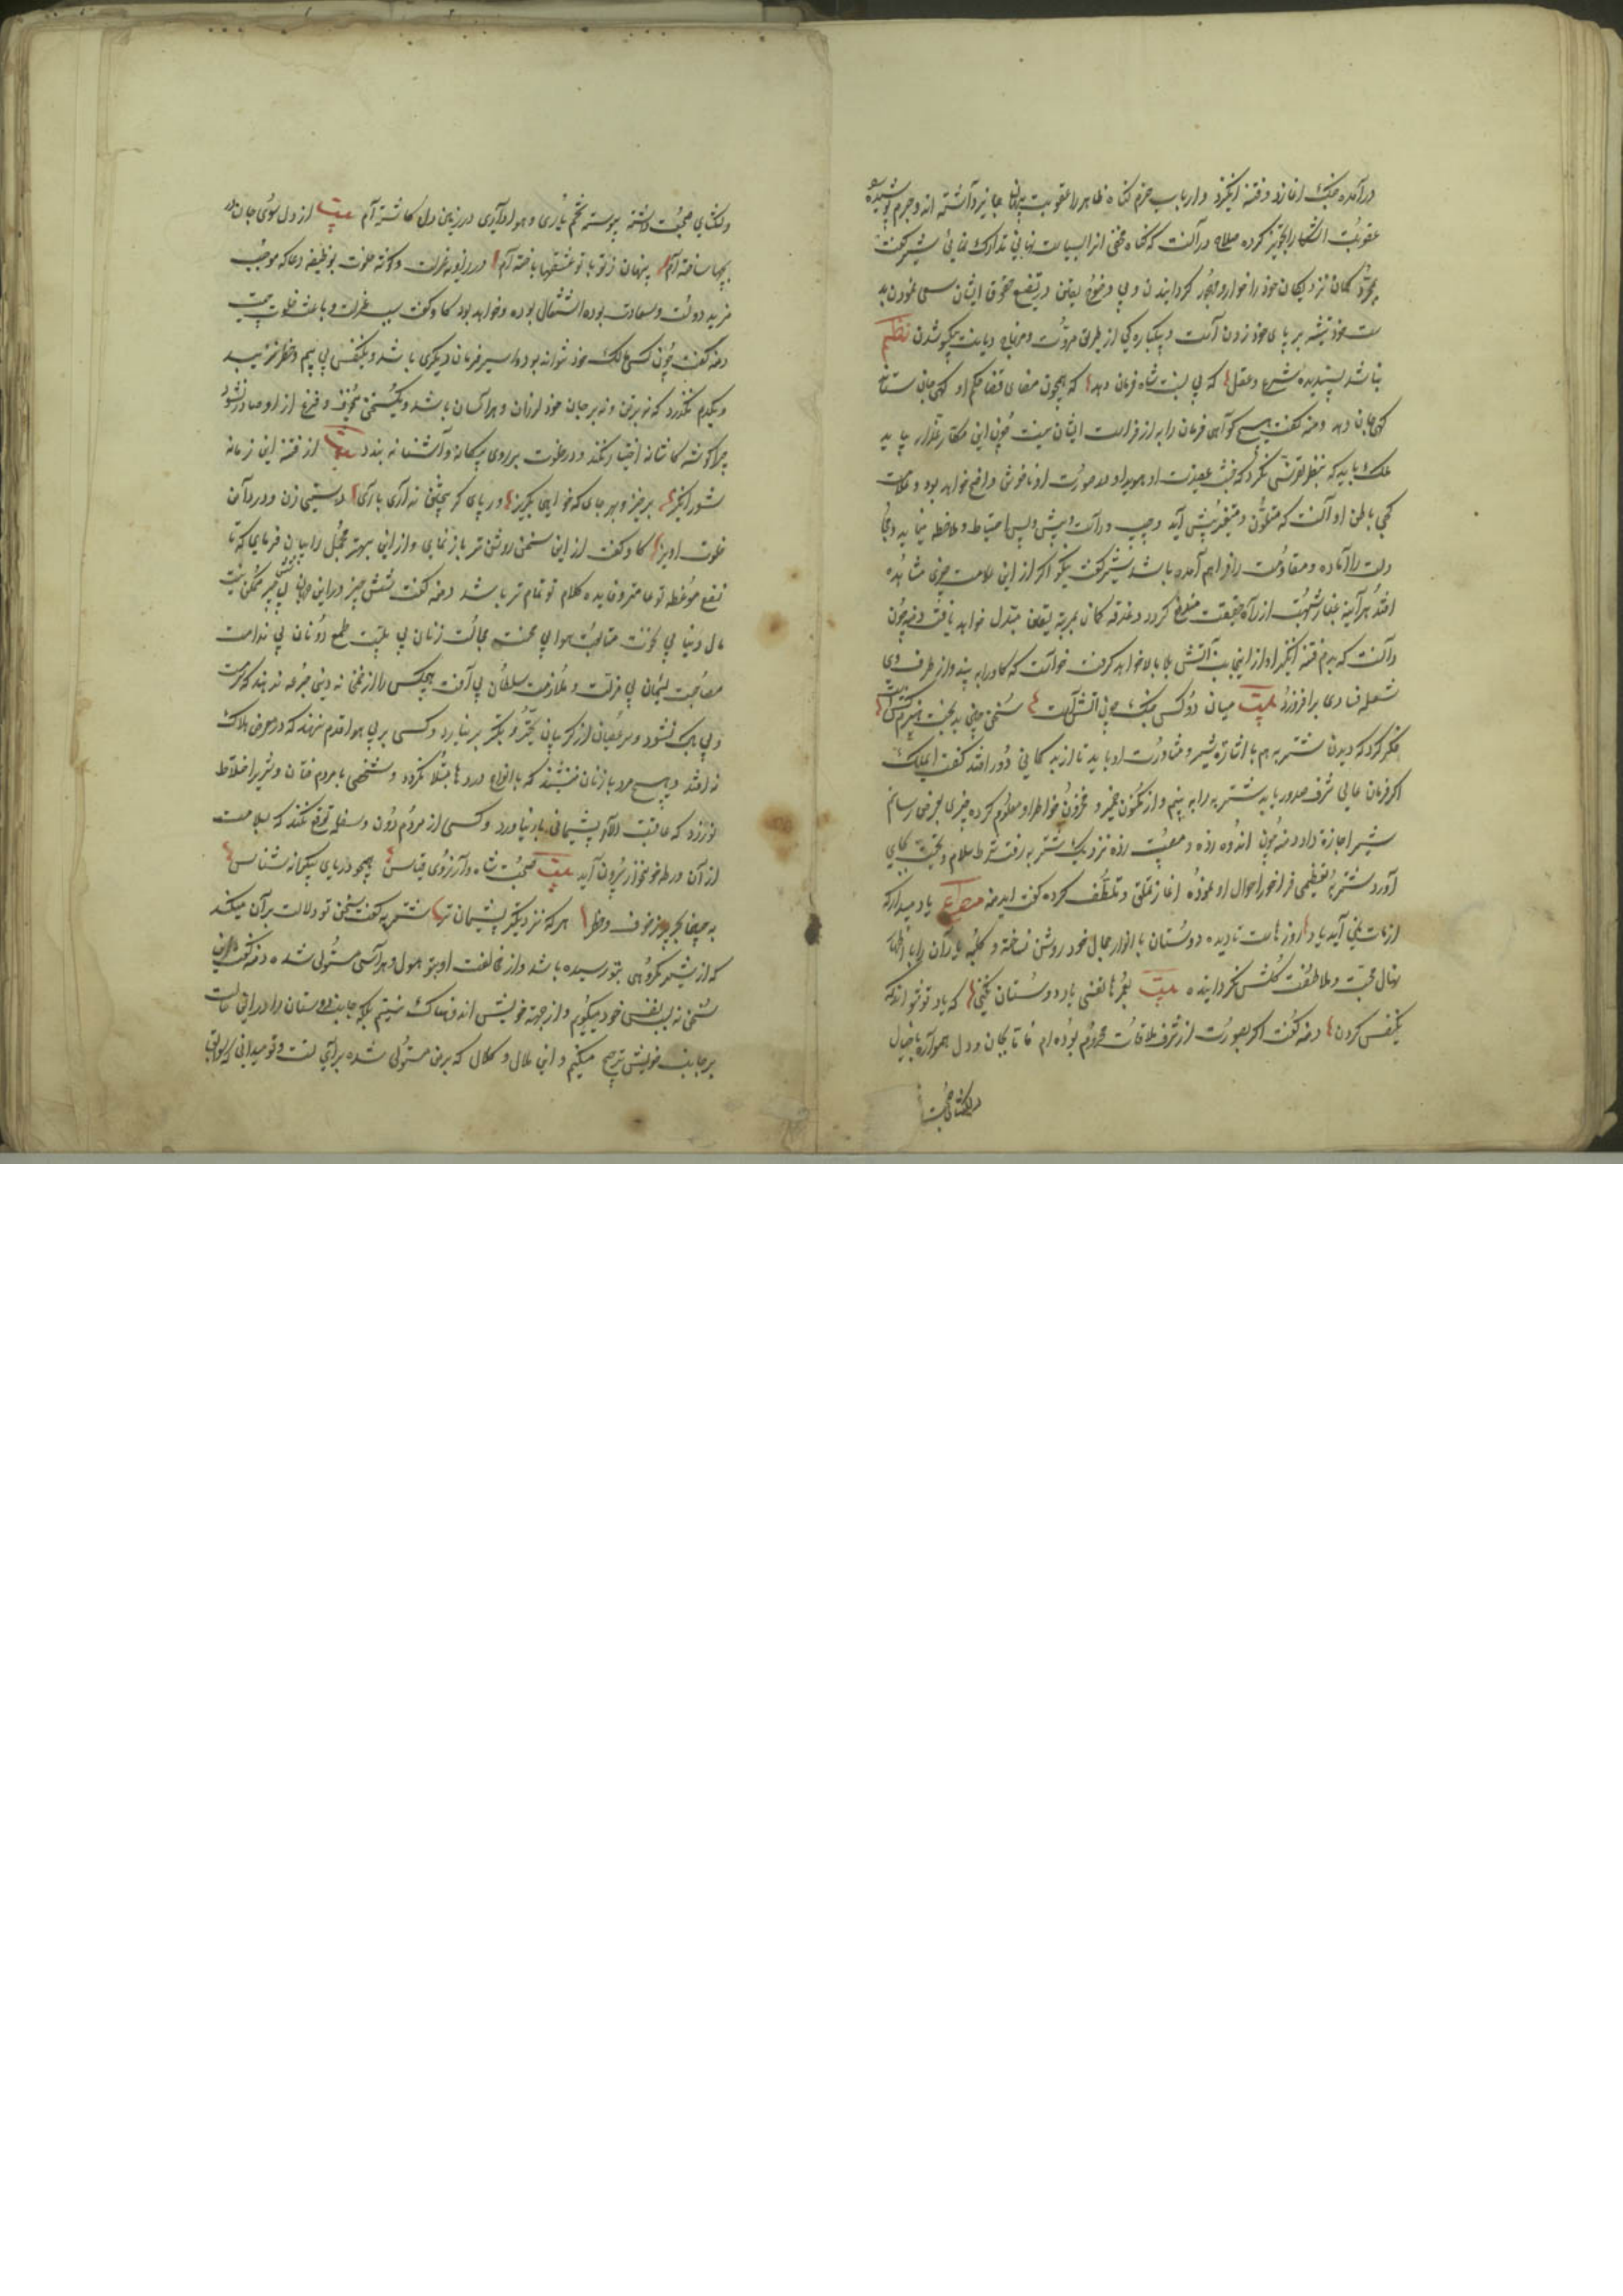 درآمده جنک اغازد و فتنه انکیزد و ارباب حزم کناه ظاهر را عقوبت پنهان جایز نداشته اند و جرم پوشیده
عقوبت اشکارا تجویز کرده صلاح درآنست که کناه مخفی انرا بسیاست نهانی تدارک نمائی شیر کفت
بمجرد کمان نزدیکان خود را خوار و مهجور کردانیدن و بی وضوح یقین در تضییع حقوق ایشان سعی نمودن بد
ست خود تیشه بر پای خود زدن است و یکباره کی از طریق مروت و منهاج دیانت یکسو شدن نظم
نباشد پسندیده شرع و عقل که بی بینت شاه فرمان دهد که همچون مضای قضا حکم او کهی جان ستاند
کهی جان دهد دمنه کفت هیچ کواهی فرمان را به از فراست ایشان نیست چون این مکار غدار بیاید
ملک باید که بنظر تفرس نکرد که خبث عقیدت او هویدا و در صورت او ناخوش واضح خواهد بود و علامت
کجی باطن او آنست که متلون و متغیر پیش آید و چپ و راست و پیش و پس احتیاط و ملاحظه نماید و جنک
را آماده و مقاومت را فراهم آمده باشد شیر کفت نیکو اکر از این علامت چیزی مشاهده
افتد هرآینه غبار شبهت از راه حقیقت مرتفع کردد و غدغه کمان بمرتبه یقین مبدل خواهد یافت دمنه چون
دانست که بدم فتنه انکیز او از اینجانب آتش بلا بالا خواهد کرفت خواست که کاو را به بیند و از طرف وی
شعله فسادی برافروزد بیت میان دو کس جنک چون آتش است سخن چین بدبخت هیزم کش است
فکر کرد که دیدن شتربه هم باشارت شیر و مشاورت او باید تا از بدکمانی دور افتد کفت ای ملک
اکر فرمان عالی شرف صدور یابد شتربه را به بینم و از مکنون ضمیر و مخزون خاطر او معلوم کرده چیزی بعرض رسانم
شیر اجازه داد دمنه چون اندوه زده و مصیبت رسیده نزدیک شتربه رفت شرط سلام و تحیت بجای
آورد شتربه تعظیمی فراخور احوال او نموده اغاز تملق و تلطف کرده کفت ای دمنه مصرع یاد میدار که
از مات نمی آید یاد روزهاست تا دیده دوستان بانوار جمال خود روشن نساخته و کلبه یاران را با ازهار
نهال محبت و ملاطفت کلشن نکردانیده بیت بعمرها نفسی یاد دوستان نکنی که یاد تو نتوانند
یکنفس کردن دمنه کفت اکر بصورت از شرف ملاقات محروم بوده ام فاما بجان و دل همواره با خیال
دلکشای محبت
دلکشای محبت داشته پیوسته تخم یاری و هواداری در زمین دل کاشته ام بیت از دل سوی جان در
یچها ساخته ام پنهان ز تو با تو عشقها باخته ام در زاویه عزلت و کوشه خلوت بوظیفه دعا که موجب
مزید دولت و سعادت بوده اشتغال بوده و خواهد بود کاو کفت سبب عزلت و باعث خلوت چیست
دمنه کفت چون کسی مالک خود نتواند بود و اسیر فرمان دیکری باشد و یکنفس بی بیم و خطر نزید
و یکدم نکذرد که نه بر تن و نه بر جان خود لرزان و هراسان باشد و یک سخن بی خوف و فزع از او صادر نشود
چرا کوشه کاشانه اختیار نکند و در خلوت بر روی بیکانه و آشنا نه بندد بیت از فتنه این زمانه
شور انکیز برخیز و بهر جای که خواهی بکریز ور پای کریختن نداری باری دستی زن و در دامن
خلوت اویز کاو کفت از این سخن روشن تر باز نمای و از این بهتر مجمل را بیان فرمای که تا
نفع موعظه تو عامتر و فایده کلام تو تمام تر باشد دمنه کفت شش چیز در این جهان بی شش چیز ممکن نیست
مال دنیا بی نخوت متابعت هوا بی محنت مجالست زنان بی بلیت طمع دونان بی ندامت
مصاحبت لئیمان بی مذلت و ملازمت سلطان بی آفت هیچکس را از خم دنیی جرعه ندهند که سرمست
و بی باک نشود و سر عصیان از کریبان تجبر و تکبر بر نیارد و کسی بر پی هوا قدم ننهد که در معرض هلاک
نه افتد و هیچ مرد با زنان ننشیند که بانواع دردها مبتلا نکردد و شخصی با مردم فتان و شریر اختلاط
نورزد که عاقبت الامر پشیمانی بار نیاورد و کسی از مردم دون و سفله توقع نکند که بسلامت
از آن ورطه خونخوار بیرون آید بیت صحبت شاه و آرزوی قیاس همچو دریای بیکرانه شناس
به چنین بحر پر ز خوف و خطر هر که نزدیکتر پشیمان تر شتربه کفت سخن تو دلالت بر آن میکند
که از شیر مکروهی بتو رسیده باشد و از مخالفت او بتو هول و هراسی مستولی شده دمنه کفت من این
سخن نه بنفس خود میکویم و از جهته خویش اندوهناک نیستم بلکه جانب دوستان را در این حالت
بر جانب خویش ترجیح میکنم و این ملال و کلال که بر من مستولی شده برای تست و تو میدانی که سوابق